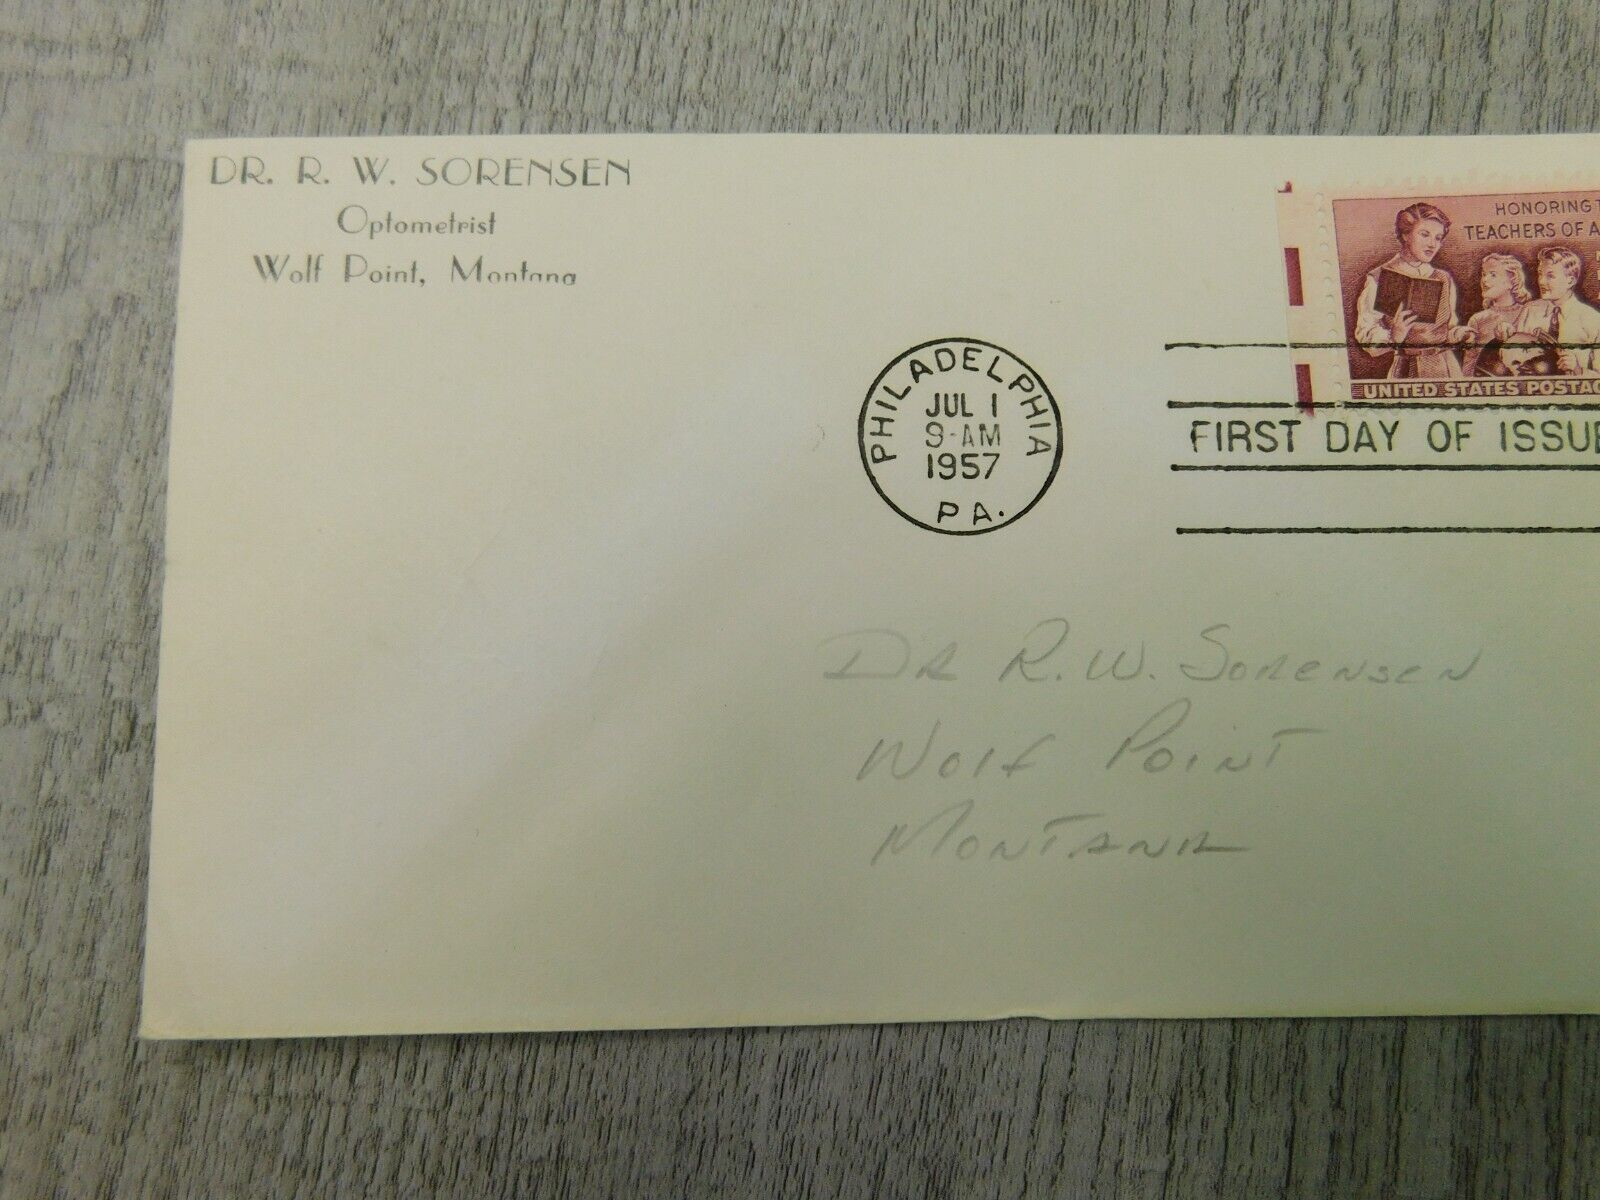 DR. R. W. SORENSEN
Optometrist
Wolf Point, Montana
HONORING
TEACHERS OF
UNITED STATES
PHILADELPHIA
JUL 1
9-AM
1957
PA.
FIRST DAY OF ISSUE
DR R. W. SORENSEN
WOLF POINT
MONTANA